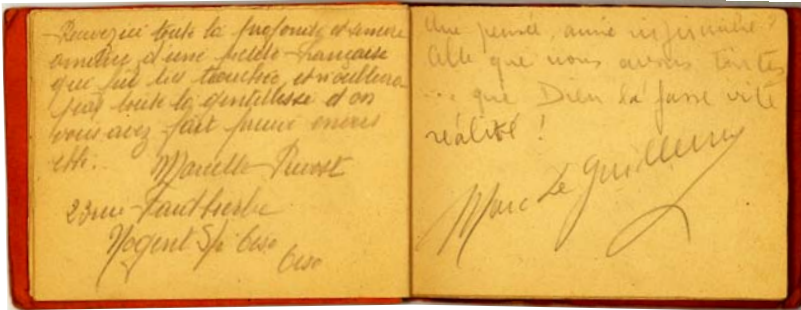 Recevez ici toute la profonde et sincère
amitié d'une petite Française
qui fut très touchée, et n'oubliera
pas toute la gentillesse d on
vous avez fait preuve envers
elle.. Marcelle Prevost
23 rue Faidherbe
Nogent S/ Oise
Oise
Une pensée, amie infirmière?
Celle que nous avons toutes
... que Dieu la fasse vite
réalité!
Marc Le Guillerm